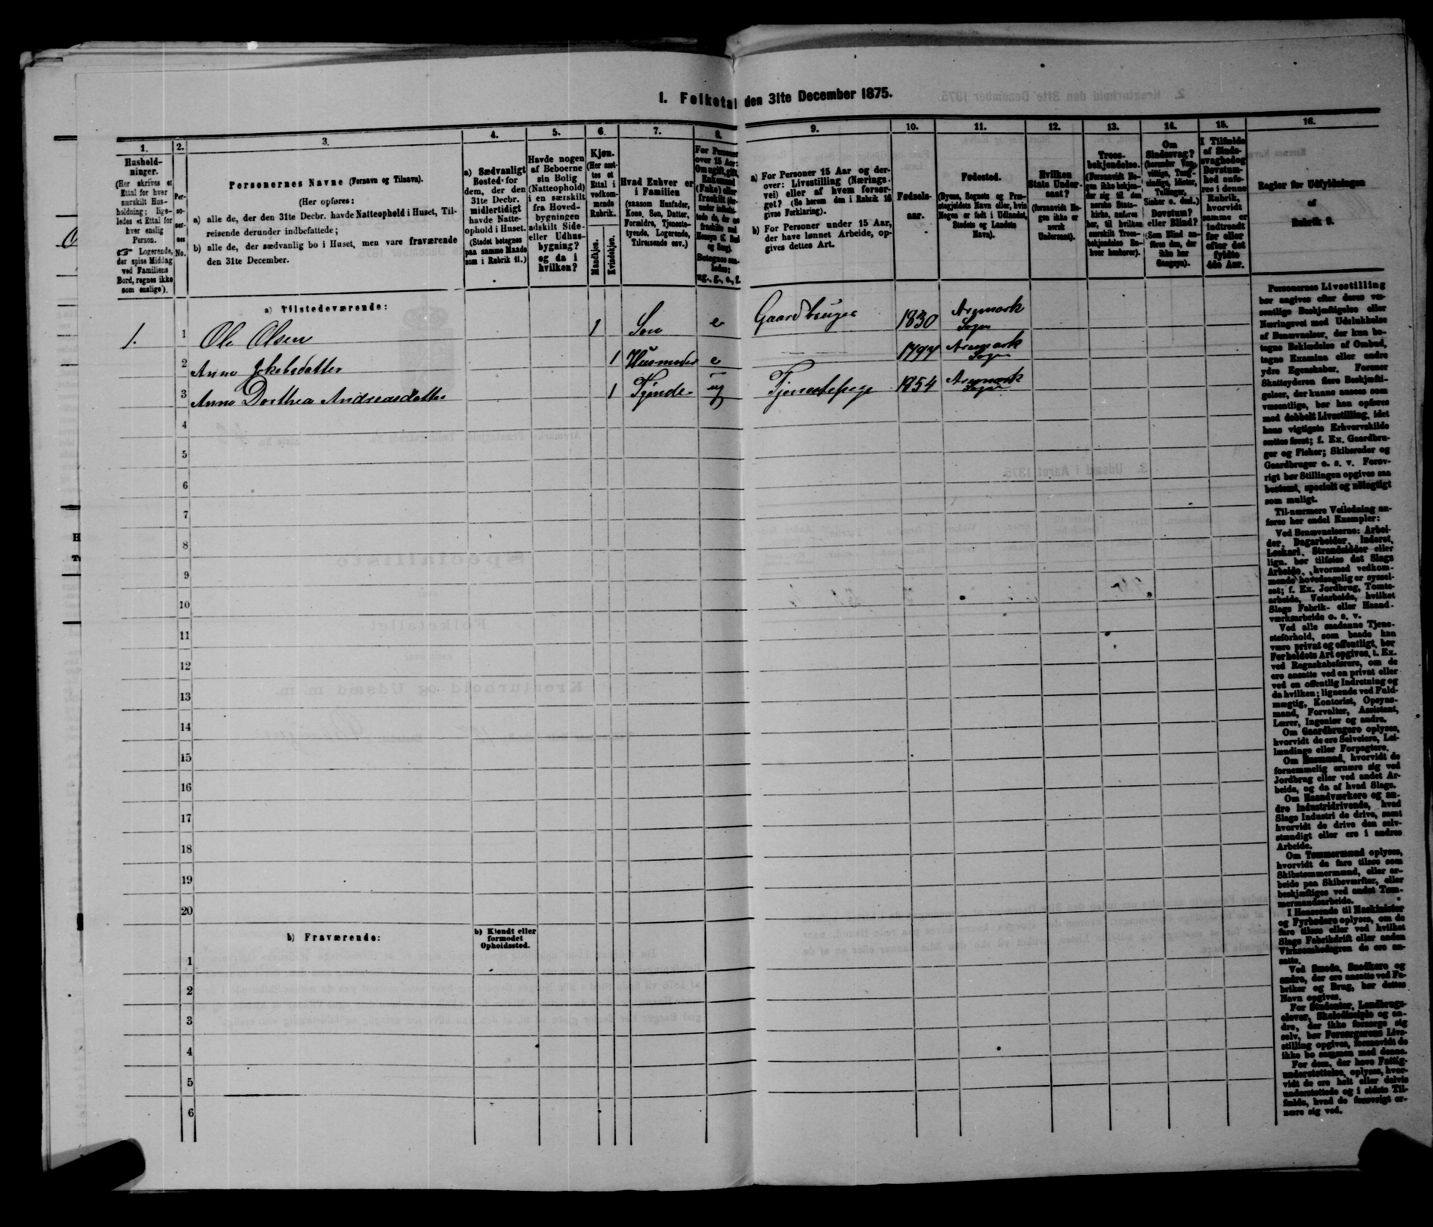 I. Folketal den 31te December 1875.
1. 2. 3. 4. 5. 6. 7. 8. 9. 10. 11. 12. 13. 14. 15. 16.
Hushold-
ninger.
(Her skrives et
Ettal for hver
særskilt Hus-
holdning; lige-
ledes et Ettal for
hver enslig
Person.
☞ Logerende,
der spise Middag
ved Familiens
Bord, regnes ikke
som enslige).
Per-
so-
ner-
nes
No.
Personernes Navne (Fornavn og Tilnavn).
(Her opføres:
a) alle de, der den 31te Decbr. havde Natteophold i Huset, Til-
reisende derunder indbefattede;
b) alle de, der sædvanlig bo i Huset, men vare fraværende
den 31te December.
a) Sædvanligt
Bosted for
dem, der den
31te Decbr.
midlertidigt
havde Natte-
ophold i Huset.
(Stedet betegnes
paa samme Maade
som i Rubrik 11.)
Havde nogen
af Beboerne
sin Bolig
(Natteophold)
i en særskilt
fra Hoved-
bygningen
adskilt Side-
eller Udhus-
bygning?
og da i
hvilken?
Kjøn.
(Her sæt-
tes et
Ettal i
vedkom-
mende
Rubrik.
Mandkjøn.
Kvindekjøn.
Hvad Enhver er
i Familien
(saasom Husfader,
Kone, Søn, Datter,
Forældre, Tjeneste-
tyende, Logerende,
Tilreisende osv.)
For Personer
over 15 Aar:
a) For Personer 15 Aar og der-
over: Livsstilling (Nærings-
vei) eller af hvem forsør-
get? (Se herom den i Rubrik 16
givne Forklaring).
b) For Personer under 15 Aar,
der have lønnet Arbeide, op-
gives dettes Art.
Fødsels-
aar.
Fødested.
(Byens, Sognets og Præ-
stegjeldets Navn eller, hvis
Nogen er født i Udlandet,
Stedets og Landets
Navn).
Hvilken
Stats Under-
saat?
(forsaavidt No-
gen ikke er
norsk
Undersaat).
Troes-
bekjendelse.
Om
Sindssvag?
Døvstum?
eller Blind?
I Tilfælde
af Sinds-
svaghed
og
Døvstum-
hed
Regler for Udfyldningen
af
Rubrik 9.
a) Tilstedeværende:
1. 1 Ole Olsen 1 Søn e Gaardbruger 1830 Aremark Sogn
2 Anne Jakobsdatter 1 Husmoder e 1797 Aremark Sogn
3 Anne Dorthea Andreasdatter 1 Tjender ug Tjenestepige 1854 Aremark Sogn
4
5
6
7
8
9
10
11
12
13
14
15
16
17
18
19
20
b) Fraværende:
b) Kjendt eller
formodet
Opholdssted.
1
2
3
4
5
6
Personernes Livsstilling
bør angives efter deres væ-
sentlige Beskjæftigelse eller
Næringsvei med Udelukkelse
af Benævnelser, der kun be-
tegne Bekladelse af Ombud,
tagne Examina eller andre
ydre Egenskaber. Forener
Skatteyderen flere Beskjæfti-
gelser, der kunne ansees som
væsentlige, bør han opføres
med dobbelt Livsstilling, idet
hans vigtigste Erhvervskilde
sættes først; f. Ex. Gaardbru-
ger og Fisker; Skibsreder og
Gaardbruger o. s. v. Forøv-
rigt bør Stillingen opgives saa
bestemt, specielt og nøiagtigt
som muligt.
Til nærmere Veiledning an-
føres her endel Exempler:
Ved Benævnelserne: Arbei-
der, Dagarbeider, Inderst,
Løskarl, Strandsidder eller
lign. bør tilføies det Slags
Arbeide, hvormed vedkom-
mende hovedsagelig er syssel-
sat; f. Ex. Jordbrug, Tomte-
arbeide, Veiarbeide, hvilket
Slags Fabrik- eller Haand-
værksarbeide o. s. v.
Ved alle saadanne Tjene-
steforhold, som baade kan
være privat og offentligt, bør
Forholdets Art opgives, f. Ex.
ved Regnskabsførere, om de
ere ansatte ved en privat eller
ved en offentlig Indretning og
da hvilken; lignende ved Fuld-
mægtig, Kontorist, Opsyns-
mand, Forvalter, Assistent,
Lærer, Ingeniør og andre.
Om Gaardbrugere oplyses,
hvorvidt de ere Selveiere, Lei-
lændinge eller Forpagtere.
Om Husmænd, hvorvidt de
fornemmelig ernære sig ved
Jordbrug eller ved andet Ar-
beide, og da af hvad Slags.
Om Haandværkere og an-
dre Industridrivende, hvad
Slags Industri de drive, samt
hvorvidt de drive den selv-
stændigt eller ere i andres
Arbeide.
Om Tømmermænd oplyses,
hvorvidt de fare tilsøs som
Skibstømmermænd, eller ar-
beide paa Skibsværfter, eller
beskjæftiges ved andet Tøm-
mermandsarbeide.
I Henseende til Maskinister
og Fyrbødere oplyses, om de
fare tilsøs eller ved hvilket
Slags Fabrikdrift eller anden
Virksomhedsgren de ere an-
satte.
Ved Smede, Snedkere og
andre, der ere ansatte ved Fa-
briker og Brug, bør dettes
Navn opgives.
For Studenter, Landbrugs-
elever, Skoledisciple og an-
dre, der ikke forsørge sig
selv, bør Forsørgerens Livs-
stilling opgives, forsaavidt de
ikke bo sammen med denne.
For dem, der have Fattig-
understøttelse, oplyses, hvor-
vidt de ere helt eller delvis
understøttede og i sidste Til-
fælde, hvad de forøvrigt er-
nære sig ved.